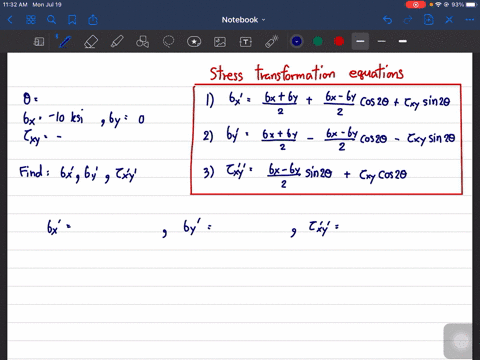 11:32 AM Mon Jul 19
93%
Notebook
Stress transformation equations
θ =
6x = -10 ksi , 6y = 0
τxy = -
Find: 6x', 6y', τx'y'
1) 6x' = (6x + 6y)/2 + (6x - 6y)/2 cos2θ + τxy sin2θ
2) 6y' = (6x + 6y)/2 - (6x - 6y)/2 cos2θ - τxy sin2θ
3) τx'y' = (6x - 6y)/2 sin2θ + τxy cos2θ
6x' = , 6y' = , τx'y' =